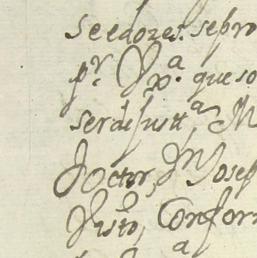 seedores. sepro
pr. Dxa. que so
ser de justta, M
Doctor, Dn Josep
Visto, Confor
a